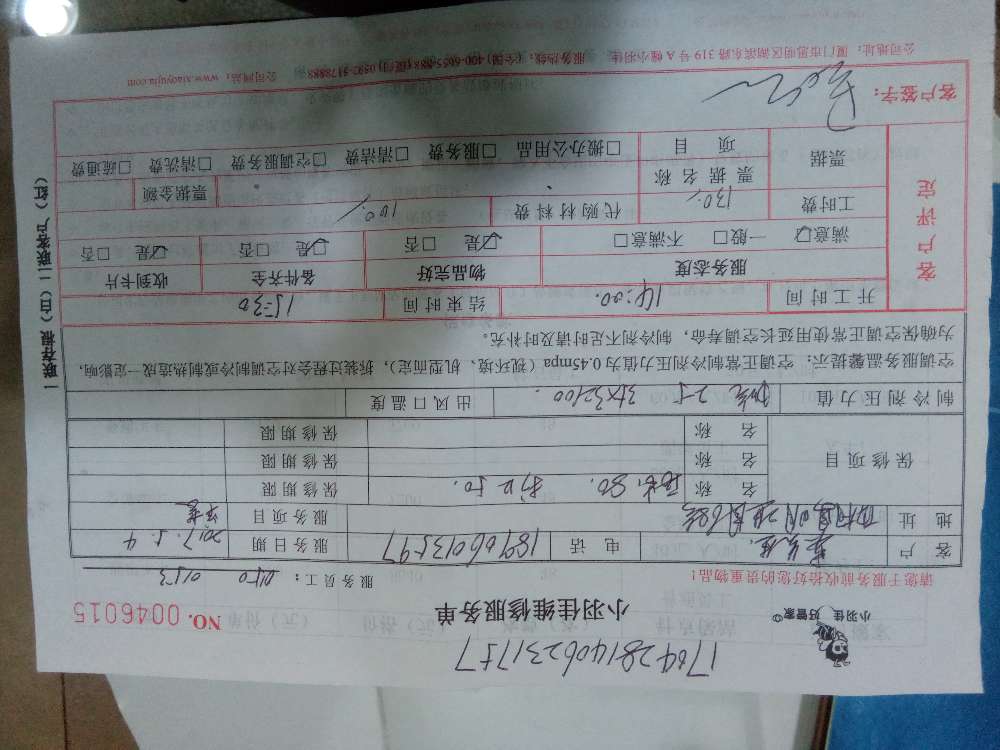 1704281406231757
小羽佳 好管家
小羽佳维修服务单
NO. 0046015
请您于服务前收检好您的贵重物品！
服务员工： 0150 0153
客户
电话 18906013597
服务日期 2017.5.4
地址
服务项目
保修项目 名称 保修期限
名称 保修期限
名称 保修期限
制冷剂压力值 加氟 出风口温度
空调服务温馨提示：空调正常制冷剂压力值为0.45mpa（视环境、机型而定），拆装过程会对空调制冷或制热造成一定影响，
为确保空调正常使用延长空调寿命，制冷剂不足时请及时补充。
客户评定
开工时间 14:00. 结束时间 15:30
服务态度 物品完好 备件齐全 收到卡片
满意☑ 一般□ 不满意□ ☑是 □否 ☑是 □否 ☑是 □否
工时费 130 代购材料费 100
票据 票据名称 票据金额
项目 □搬办公用品 □服务费 □清洁费 □空调服务费 □清洗费 □疏通费
客户签字：
公司地址：厦门市思明区湖滨东路319号A幢小羽佳 服务热线：(全国) 400-6655-888 (厦门) 0592-5178888 公司网站：www.xiaoyujia.com
一联存根（白）二联客户（红）